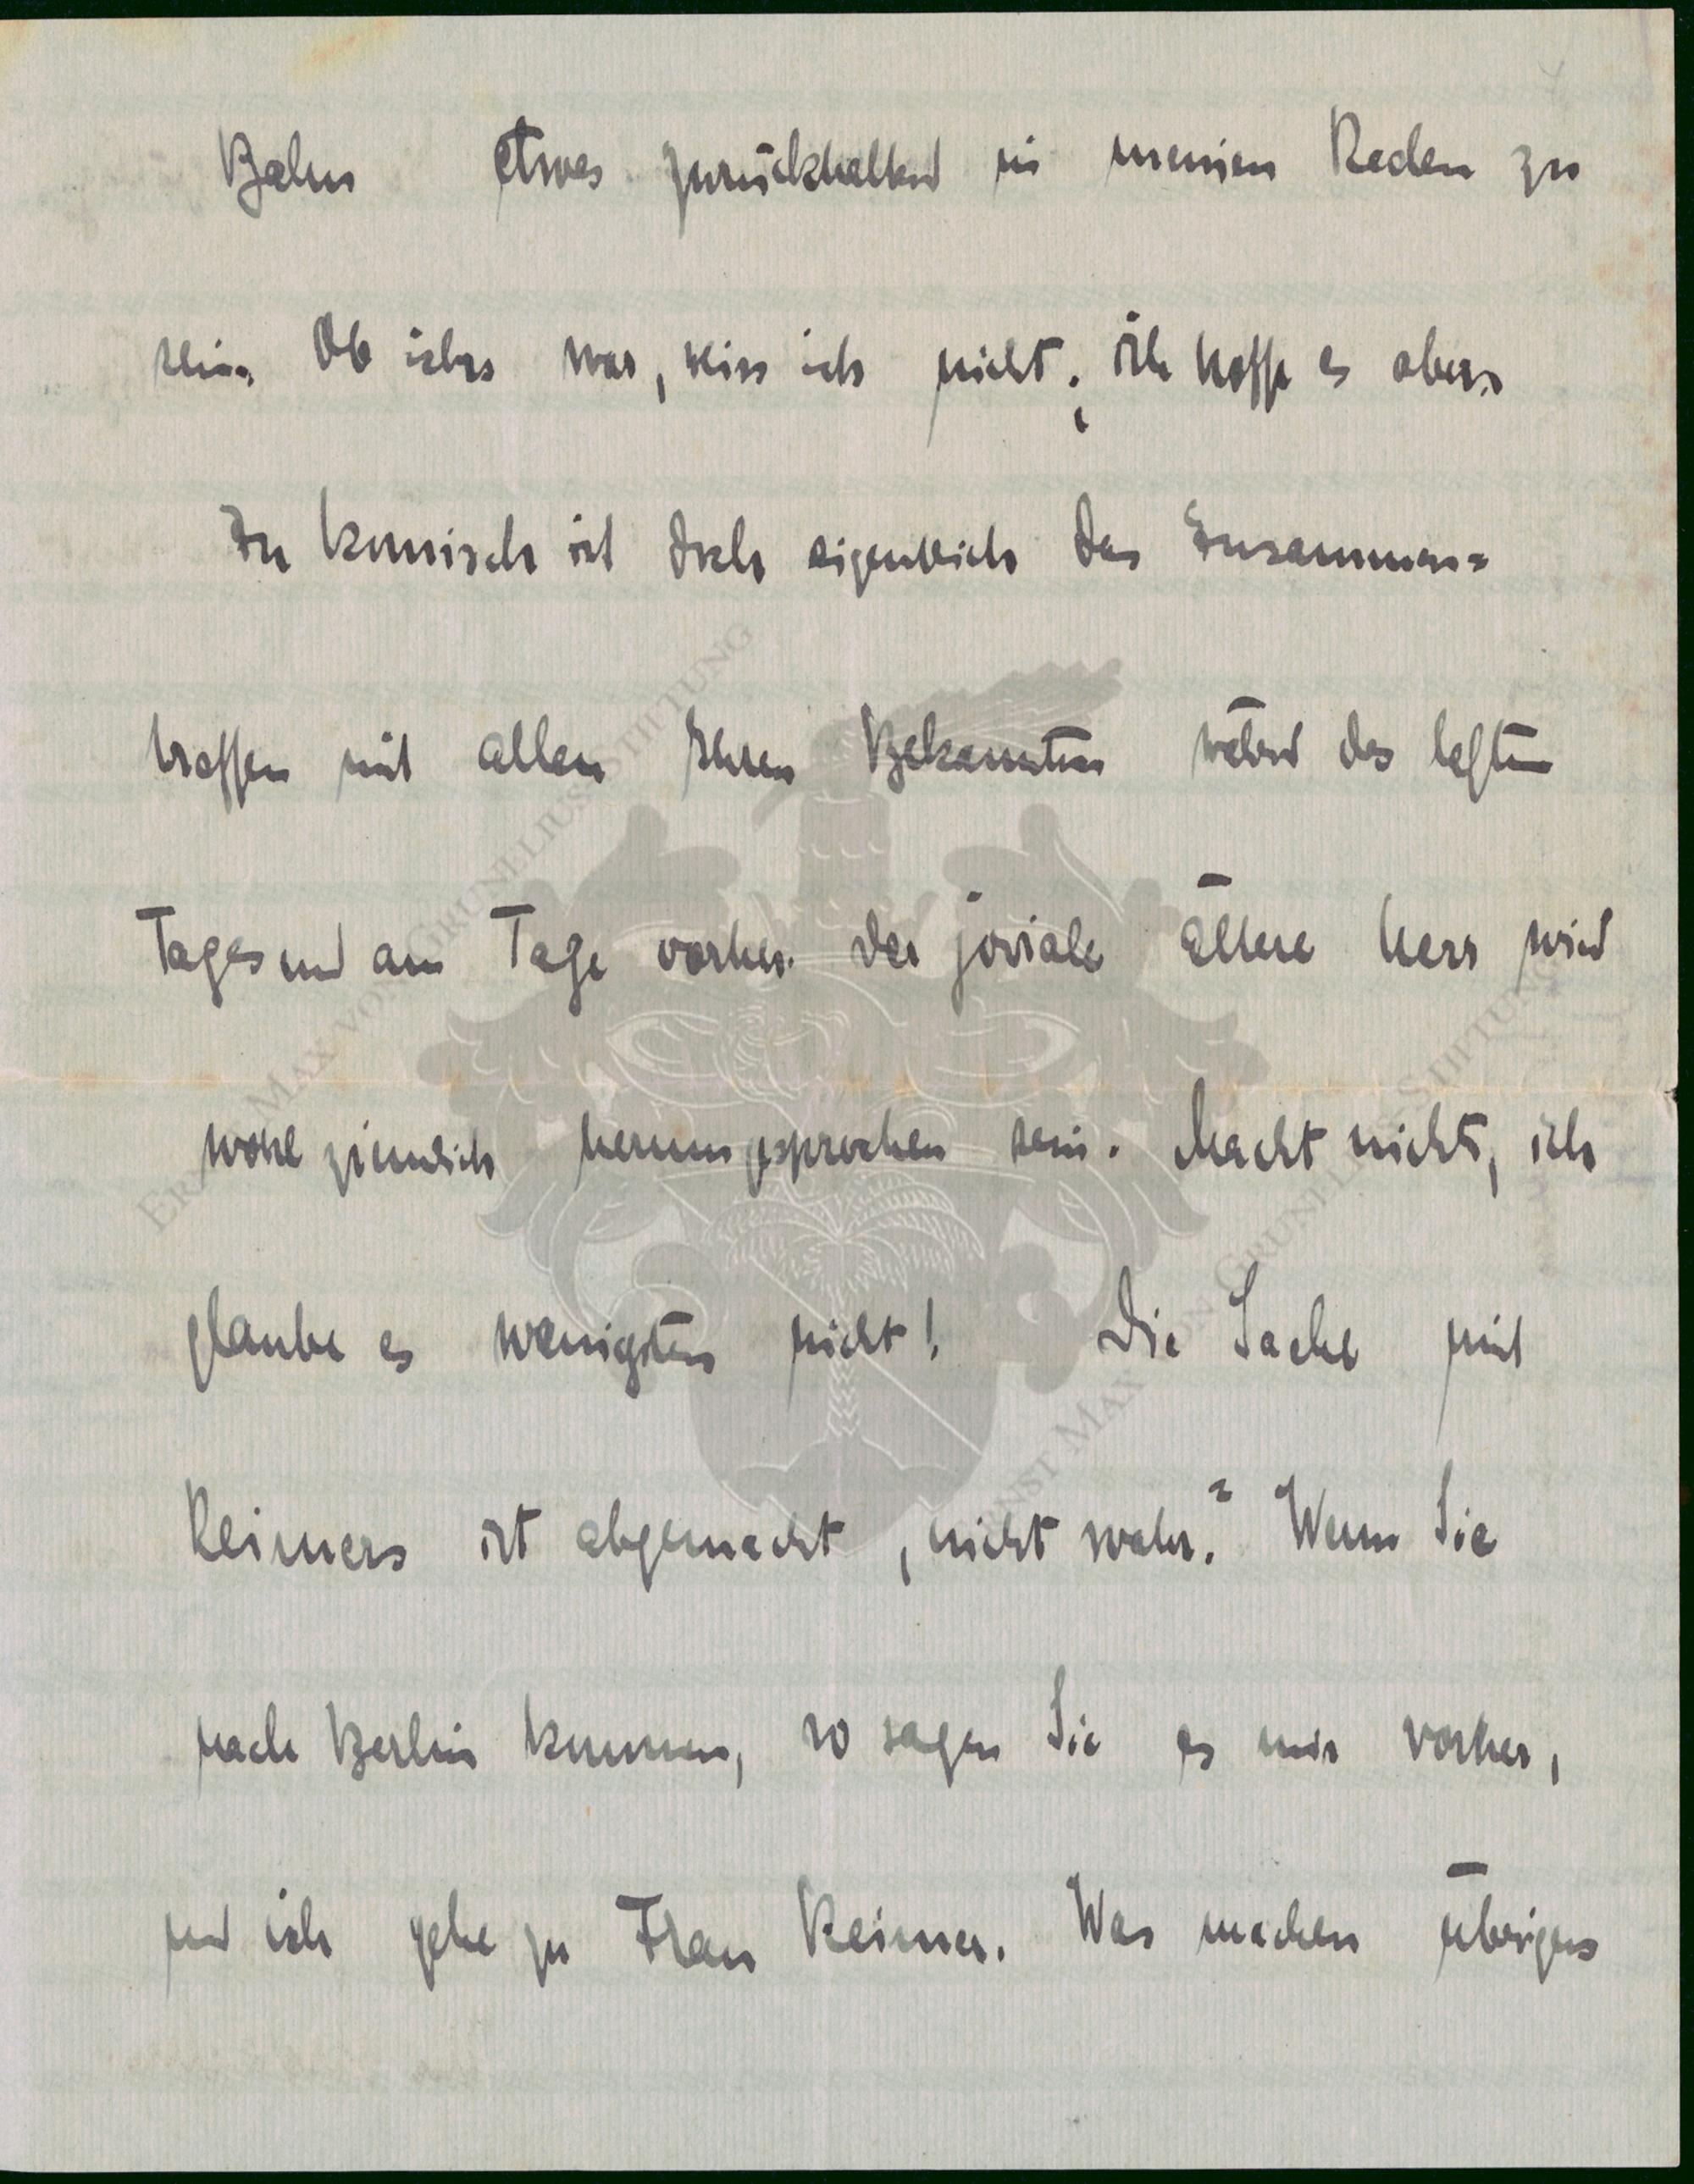 Bahn etwas zurückhaltend in meinen Reden zu
sein. Ob ichs war, weiss ich nicht; ich hoffe es aber.
Zu komisch ist doch eigentlich das Zusammen=
treffen mit allen Ihren Bekannten währd des letzten
Tages und am Tage vorher. Der joviale ältere Herr wird
wohl ziemlich herumgesprochen sein. Macht nichts, ich
glaube es wenigstens nicht! Die Sache mit
Reimers ist abgemacht, nicht wahr? Wenn Sie
nach Berlin kommen, so sagen Sie es mir vorher,
und ich gehe zu Frau Reimer. Was machen übrigens
ERNST MAX VON GRUNELIUS-STIFTUNG
ERNST MAX VON GRUNELIUS-STIFTUNG